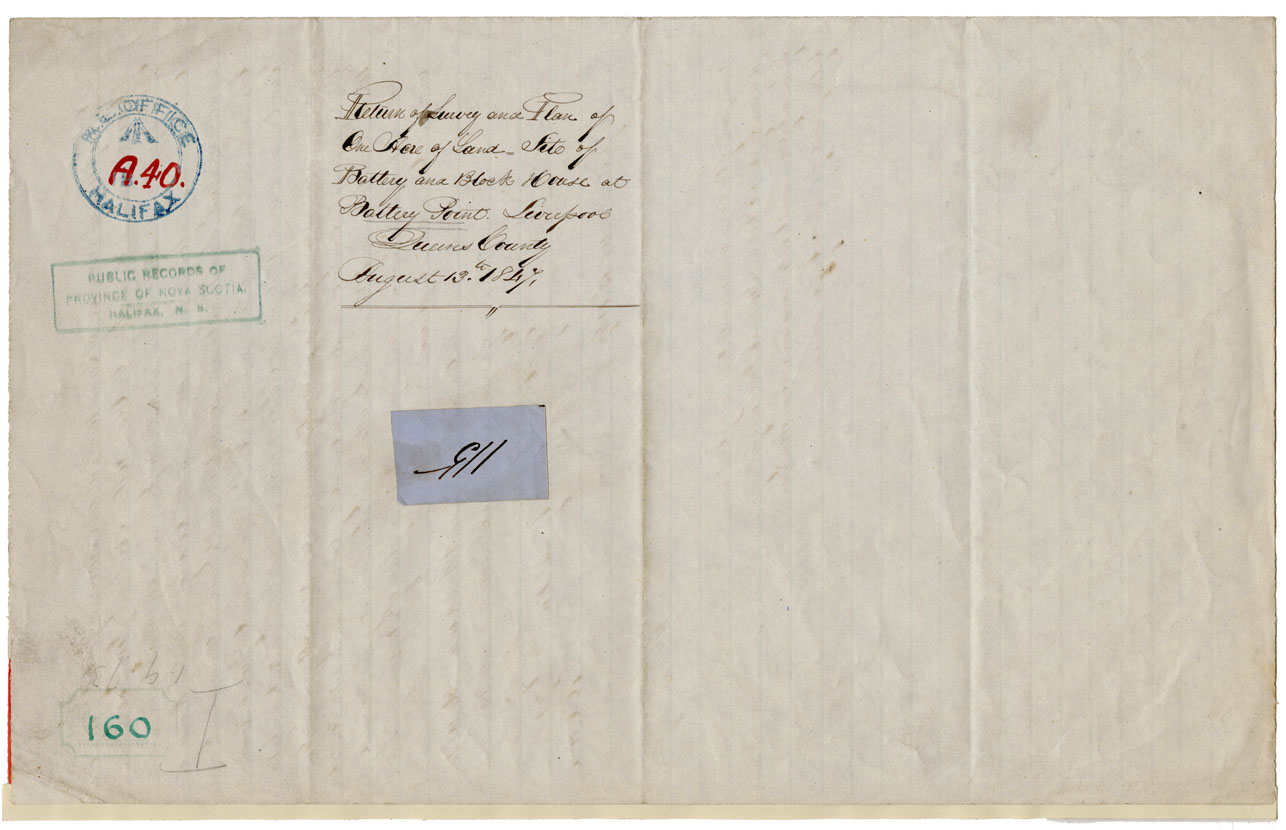 R.E. OFFICE
A.40.
HALIFAX
PUBLIC RECORDS OF
PROVINCE OF NOVA SCOTIA.
HALIFAX, N. S.
Return of Survey and Plan of
One Acre of Land - Site of
Battery and Block House at
Battery Point. Liverpool
Queens County
August 13.th 1847.
160
I